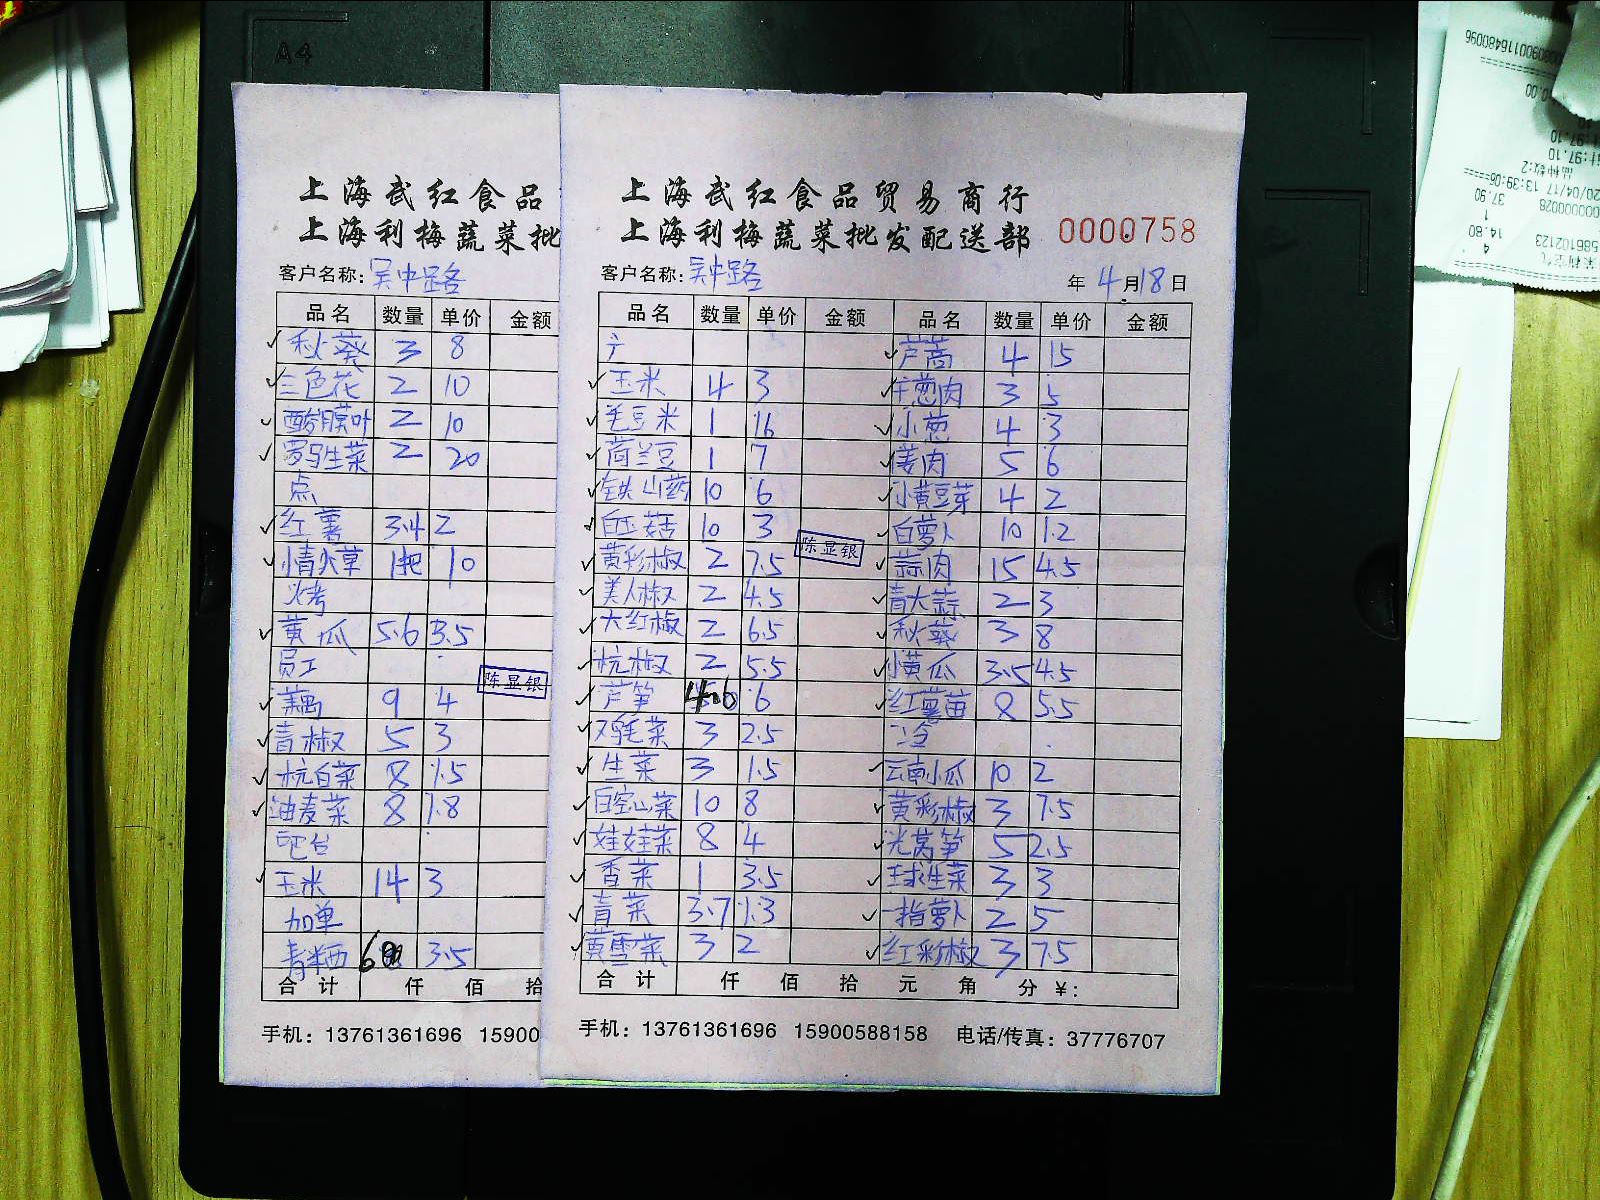 A4
上海武红食品
上海利梅蔬菜批
客户名称：吴中路
品名 数量 单价 金额
秋葵 3 8
三色花 2 10
酸膜叶 2 10
罗马生菜 2 20
点
红薯 3.4 2
情人草 1把 10
火考
黄瓜 5.6 3.5
员工
藕 9 4
青椒 5 3
杭白菜 8 1.5
油麦菜 8 1.8
吧台
玉米 14 3
加单
3.5
合计 仟 佰 拾
手机：13761361696 15900
陈显银
上海武红食品贸易商行
上海利梅蔬菜批发配送部
0000758
客户名称：吴中路
年 4月18日
品名 数量 单价 金额 品名 数量 单价 金额
芦蒿 4 15
玉米 4 3 洋葱肉 3 5
毛豆米 1 16 小葱 4 3
荷兰豆 1 7 姜肉 5 6
铁山药 10 6 小黄豆芽 4 2
白玉菇 10 3 白萝卜 10 1.2
黄彩椒 2 7.5 蒜肉 15 4.5
美人椒 2 4.5 青大蒜 2 3
大红椒 2 6.5 秋葵 3 8
杭椒 2 5.5 小黄瓜 3.5 4.5
芦笋 4.6 6 红薯苗 8 5.5
鸡毛菜 3 2.5 冷
生菜 3 1.5 云南小瓜 10 2
白空心菜 10 8 黄彩椒 3 7.5
娃娃菜 8 4 光莴笋 5 2.5
香菜 1 3.5 球生菜 3 3
青菜 3.7 1.3 一指萝卜 2 5
黄雪菜 3 2 红彩椒 3 7.5
合计 仟 佰 拾 元 角 分 ¥：
手机：13761361696 15900588158 电话/传真：37776707
陈显银